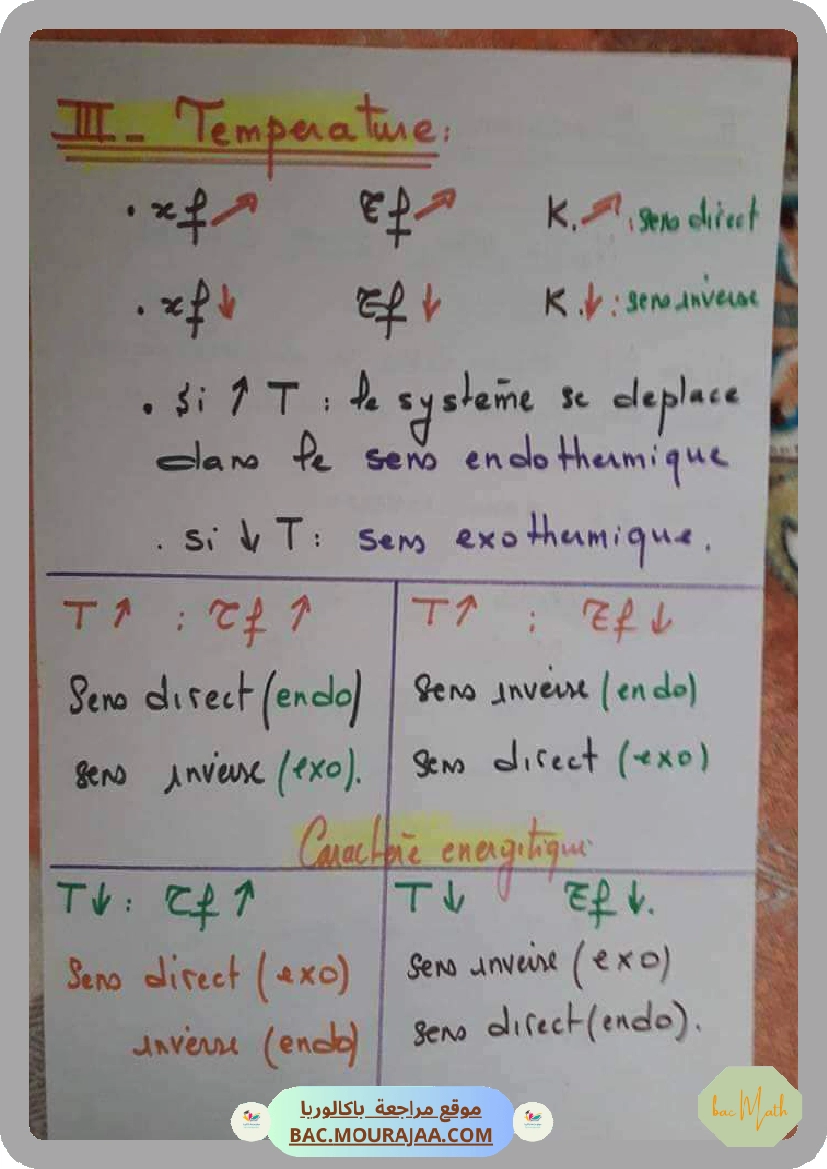 III- Temperature:
. xf ↗ τf ↗ K. ↗ : sens direct
. xf ↓ τf ↓ K. ↓ : sens inverse
. si ↑ T : le système se deplace
dans le sens endothermique
. si ↓ T : sens exothermique.
T ↑ : τf ↑
Sens direct (endo)
sens inverse (exo).
T ↑ : τf ↓
Sens inverse (endo)
sens direct (exo)
Caractère energitique
T ↓ : τf ↑
Sens direct (exo)
inverse (endo)
T ↓ τf ↓.
sens inverse (exo)
sens direct (endo).
موقع مراجعة باكالوريا
BAC.MOURAJAA.COM
bac Math